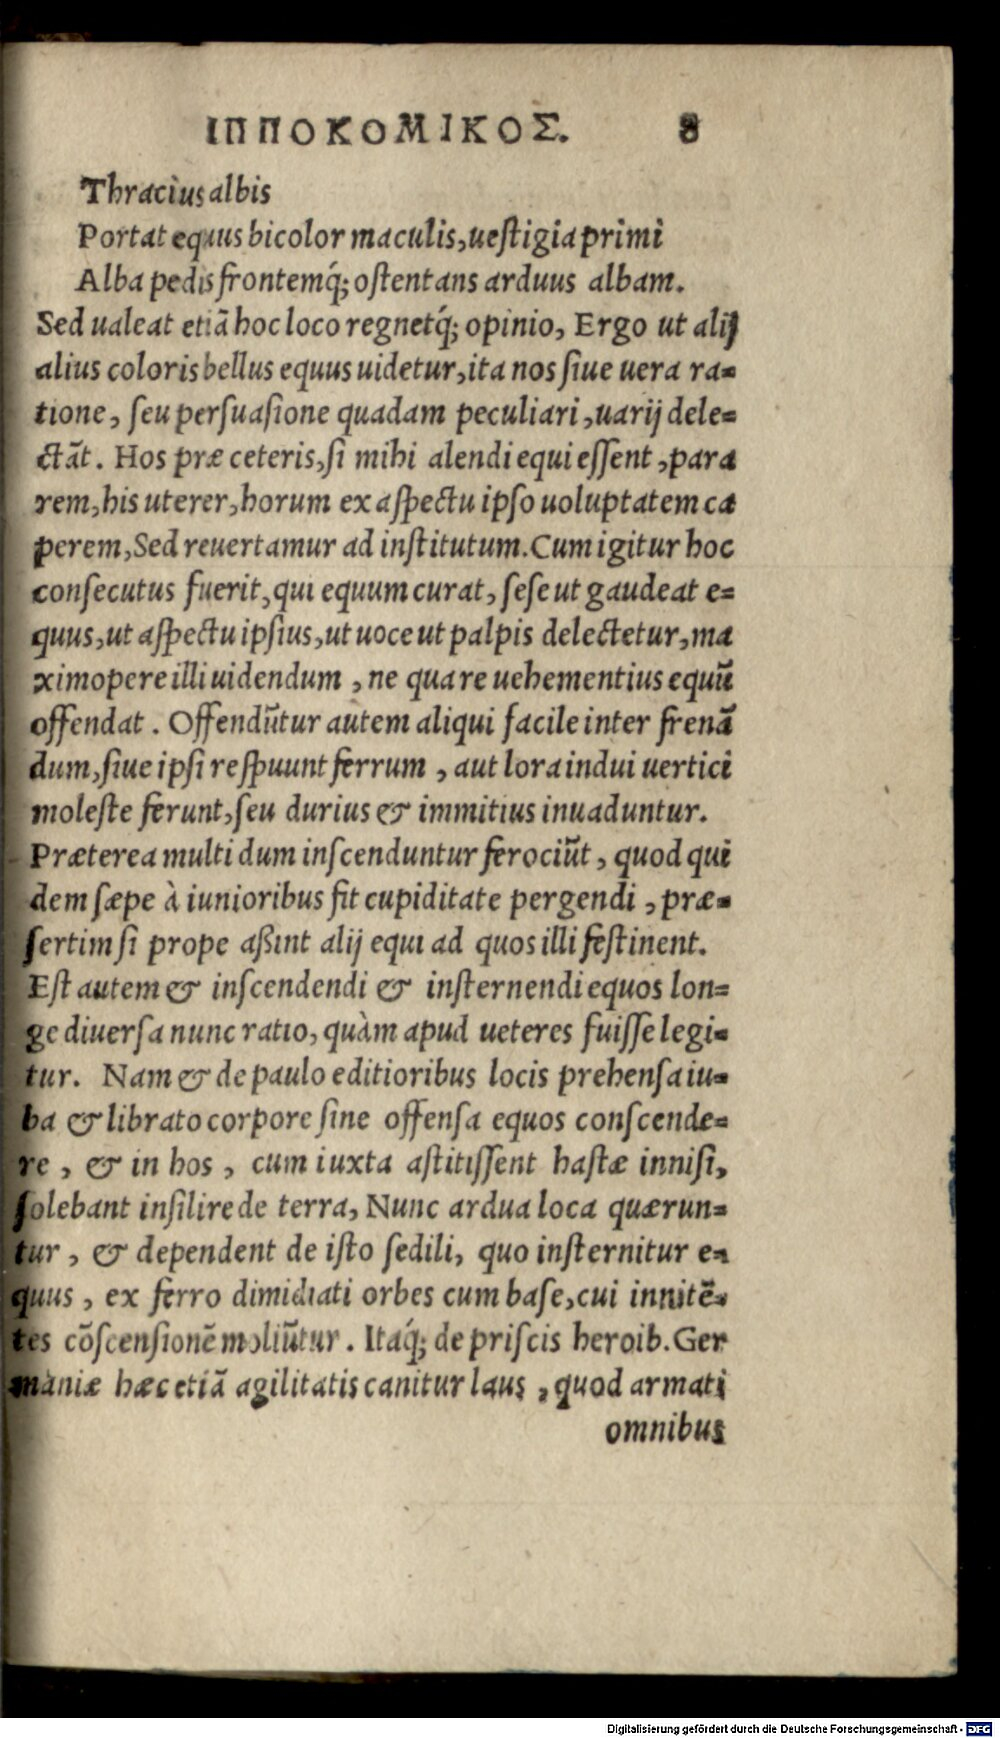 ΙΠΠΟΚΟΜΙΚΟΣ. 8
Thracius albis
Portat equus bicolor maculis, uestigia primi
Alba pedis frontemq́; ostentans arduus albam.
Sed ualeat etiã hoc loco regnetq́; opinio, Ergo ut alij
alius coloris bellus equus uidetur, ita nos siue uera ra=
tione, seu persuasione quadam peculiari, uarij dele=
ctãt. Hos præ ceteris, si mihi alendi equi essent, para
rem, his uterer, horum ex aspectu ipso uoluptatem ca
perem, Sed reuertamur ad institutum. Cum igitur hoc
consecutus fuerit, qui equum curat, sese ut gaudeat e=
quus, ut aspectu ipsius, ut uoce ut palpis delectetur, ma
ximopere illi uidendum, ne qua re uehementius equũ
offendat. Offendũtur autem aliqui facile inter frenã
dum, siue ipsi respuunt ferrum, aut lora indui uertici
moleste ferunt, seu durius & immitius inuaduntur.
Præterea multi dum inscenduntur ferociũt, quod qui
dem sæpe à iunioribus fit cupiditate pergendi, præ=
sertim si prope aßint alij equi ad quos illi festinent.
Est autem & inscendendi & insternendi equos lon=
ge diuersa nunc ratio, quàm apud ueteres fuisse legi=
tur. Nam & de paulo editioribus locis prehensa iu=
ba & librato corpore sine offensa equos conscende=
re, & in hos, cum iuxta astitissent hastæ innisi,
solebant insilire de terra, Nunc ardua loca quærun=
tur, & dependent de isto sedili, quo insternitur e=
quus, ex ferro dimidiati orbes cum base, cui innitẽ=
tes cõscensionẽ moliũtur. Itaq́; de priscis heroib. Ger
maniæ hæc etiã agilitatis canitur laus, quod armati
omnibus
Digitalisierung gefördert durch die Deutsche Forschungsgemeinschaft - DFG